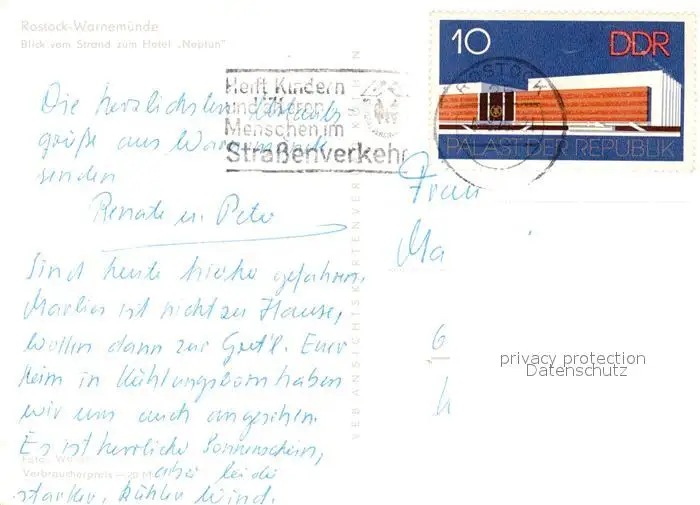 Rostock-Warnemünde
Blick vom Strand zum Hotel „Neptun"
10 DDR
PALAST DER REPUBLIK
ROSTOCK
Helft Kindern
und älteren
Menschen im
Straßenverkehr
Die herzlichsten Urlaubs
grüße aus Warnemünde
senden
Renate u. Peter
Sind heute hierher gefahren,
Marlies ist nicht zu Hause,
wollen dann zur Gret'l. Euer
Heim in Kühlungsborn haben
wir uns auch angesehen.
Es ist herrlicher Sonnenschein,
aber leider
starker, kühler Wind.
Foto:
Verbraucherpreis -,20 M
VEB ANSICHTSKARTENVER
Frau
Ma
G
privacy protection
Datenschutz